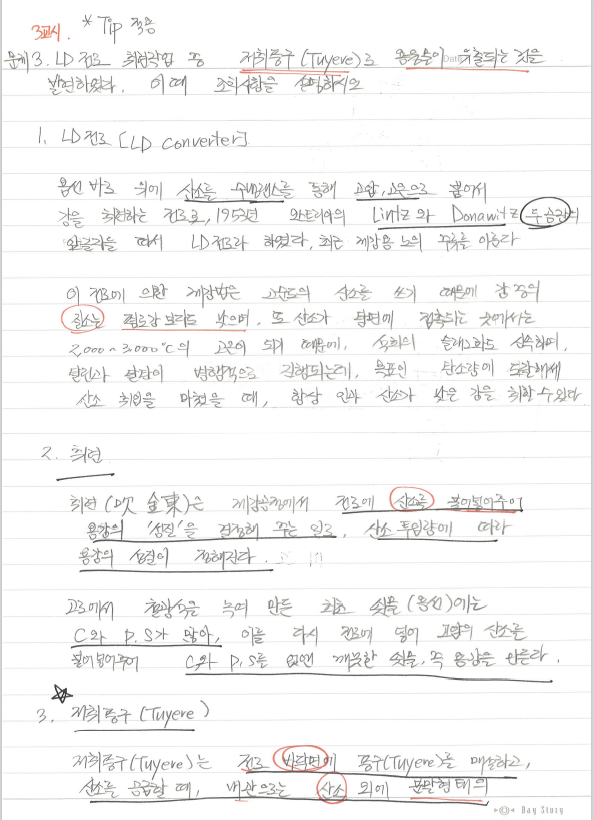 3교시. * Tip 적용
문제3. LD전로 취련작업 중 저취풍구(Tuyere)로 용융물이 유출되는 것을
발견하였다. 이때 조치사항을 설명하시오
1. LD전로 [LD converter]
용선 바로 위에 산소를 수냉랜스를 통해 고압, 고온으로 불어서
강을 취련하는 전로로, 1953년 오스트리아의 Lintz와 Donawitz 두 공장의
앞글자를 따서 LD전로라 하였다, 최근 제강용 노의 주류를 이룬다
이 전로에 의한 제강법은 고순도의 산소를 쓰기 때문에 강 중의
질소는 평로강 보다도 낮으며, 또 산소가 탕면에 접촉되는 곳에서는
2,000~3,000℃의 고온이 되기 때문에, 석회의 슬래그화도 신속하며,
탈인과 탈탄이 병행적으로 진행되는데, 목표인 탄소량에 도달해서
산소 취입을 마쳤을 때, 항상 인과 산소가 낮은 강을 취할 수 있다
2. 취련
취련(吹 金東)은 제강공정에서 전로에 산소를 불어넣어주어
용강의 '성질'을 결정해 주는 일로, 산소 투입량에 따라
용강의 성질이 정해진다.
고로에서 철광석을 녹여 만든 최초 쇳물(용선)에는
C와 P.S가 많아, 이를 다시 전로에 넣어 고압의 산소를
불어넣어주어 C와 P.S를 없앤 깨끗한 쇳물, 즉 용강을 만든다.
3. 저취풍구(Tuyere)
저취풍구(Tuyere)는 전로 바닥면에 풍구(Tuyere)를 매설하고,
산소를 공급할 때, 내관으로는 산소 외에 분말형태의
Day Story